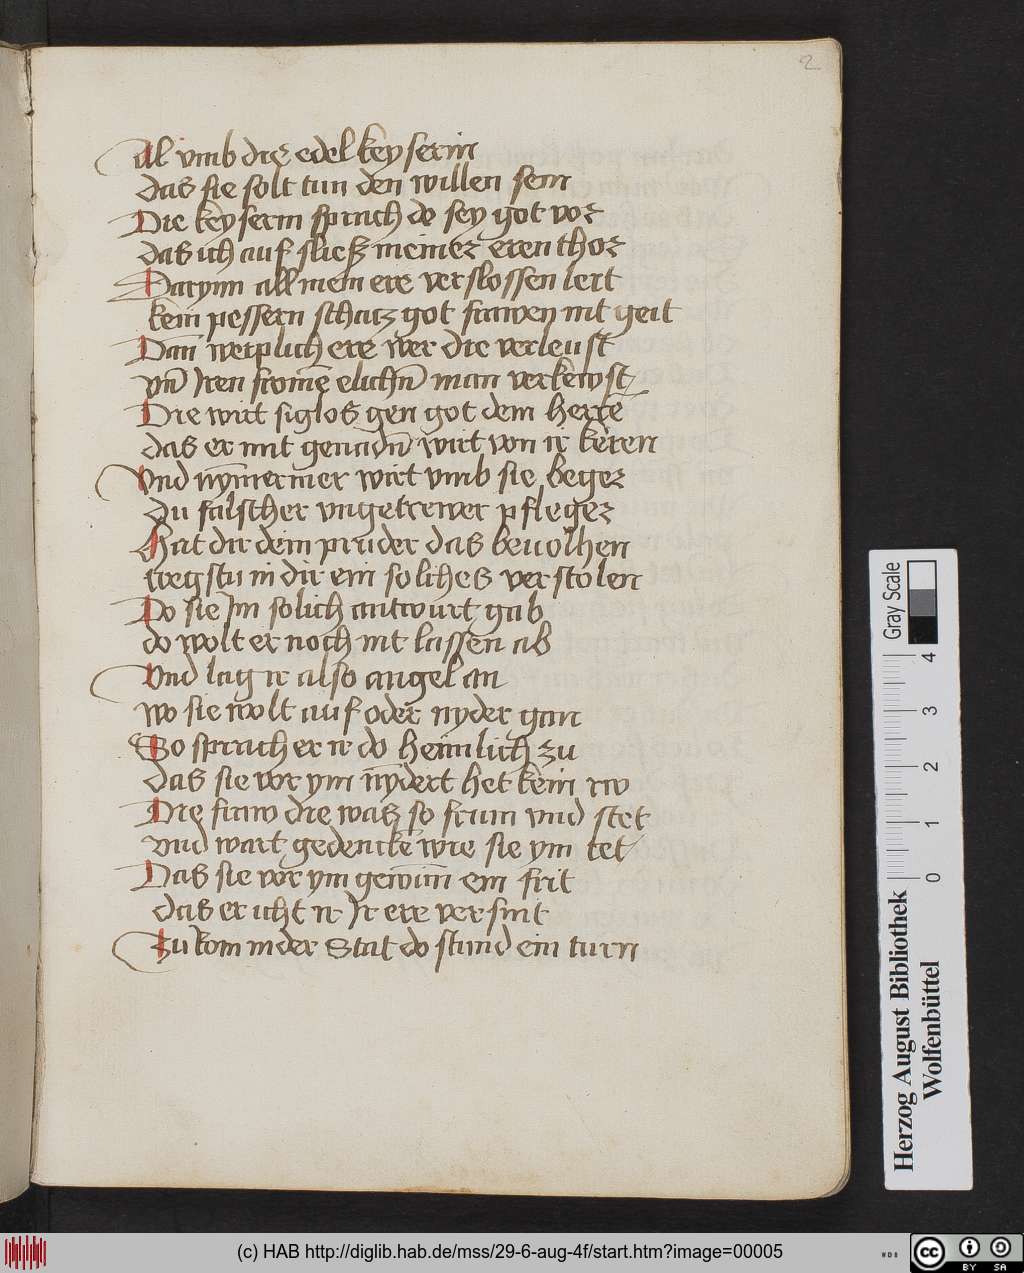 2
Al vmb die edel keyserin
das sie solt tun den willen sein
Die keyserin sprach do sey got vor
das ich auf sließ meiner eren thor
Darynn all mein ere verslossen leit
kein pessern schatz got frawen nit geit
Dan̄ weiplich ere wer die verleust
vn̄ Iren from̄e elichn̄ man verkewst
Die wirt siglos gen got dem herre
das er mit genadn̄ wirt von ir keren
Vnd nym̄ermer wirt vmb sie beger
du falscher vngetrewer pfleger
Hat dir dein pruder das beuolhen
tregstu in dir ein solches verstolen
Do sie Im solich antwurt gab
do wolt er noch nit lassen ab
Vnd lag ir also angel an
wo sie wolt auf oder nyder gan
So sprach er ir do heimlich zu
das sie vor ym n̄ydert het kein rw
Die fraw die waß so frum vnd stet
vnd wart gedencke wie sie ym tet
Das sie vor ym gewin̄ ein frit
das er icht ir Ir ere versnit
Zu kom in der Stat do stund ein turn
Herzog August Bibliothek
Wolfenbüttel
Gray Scale
0 1 2 3 4
(c) HAB http://diglib.hab.de/mss/29-6-aug-4f/start.htm?image=00005
WDB
cc BY SA